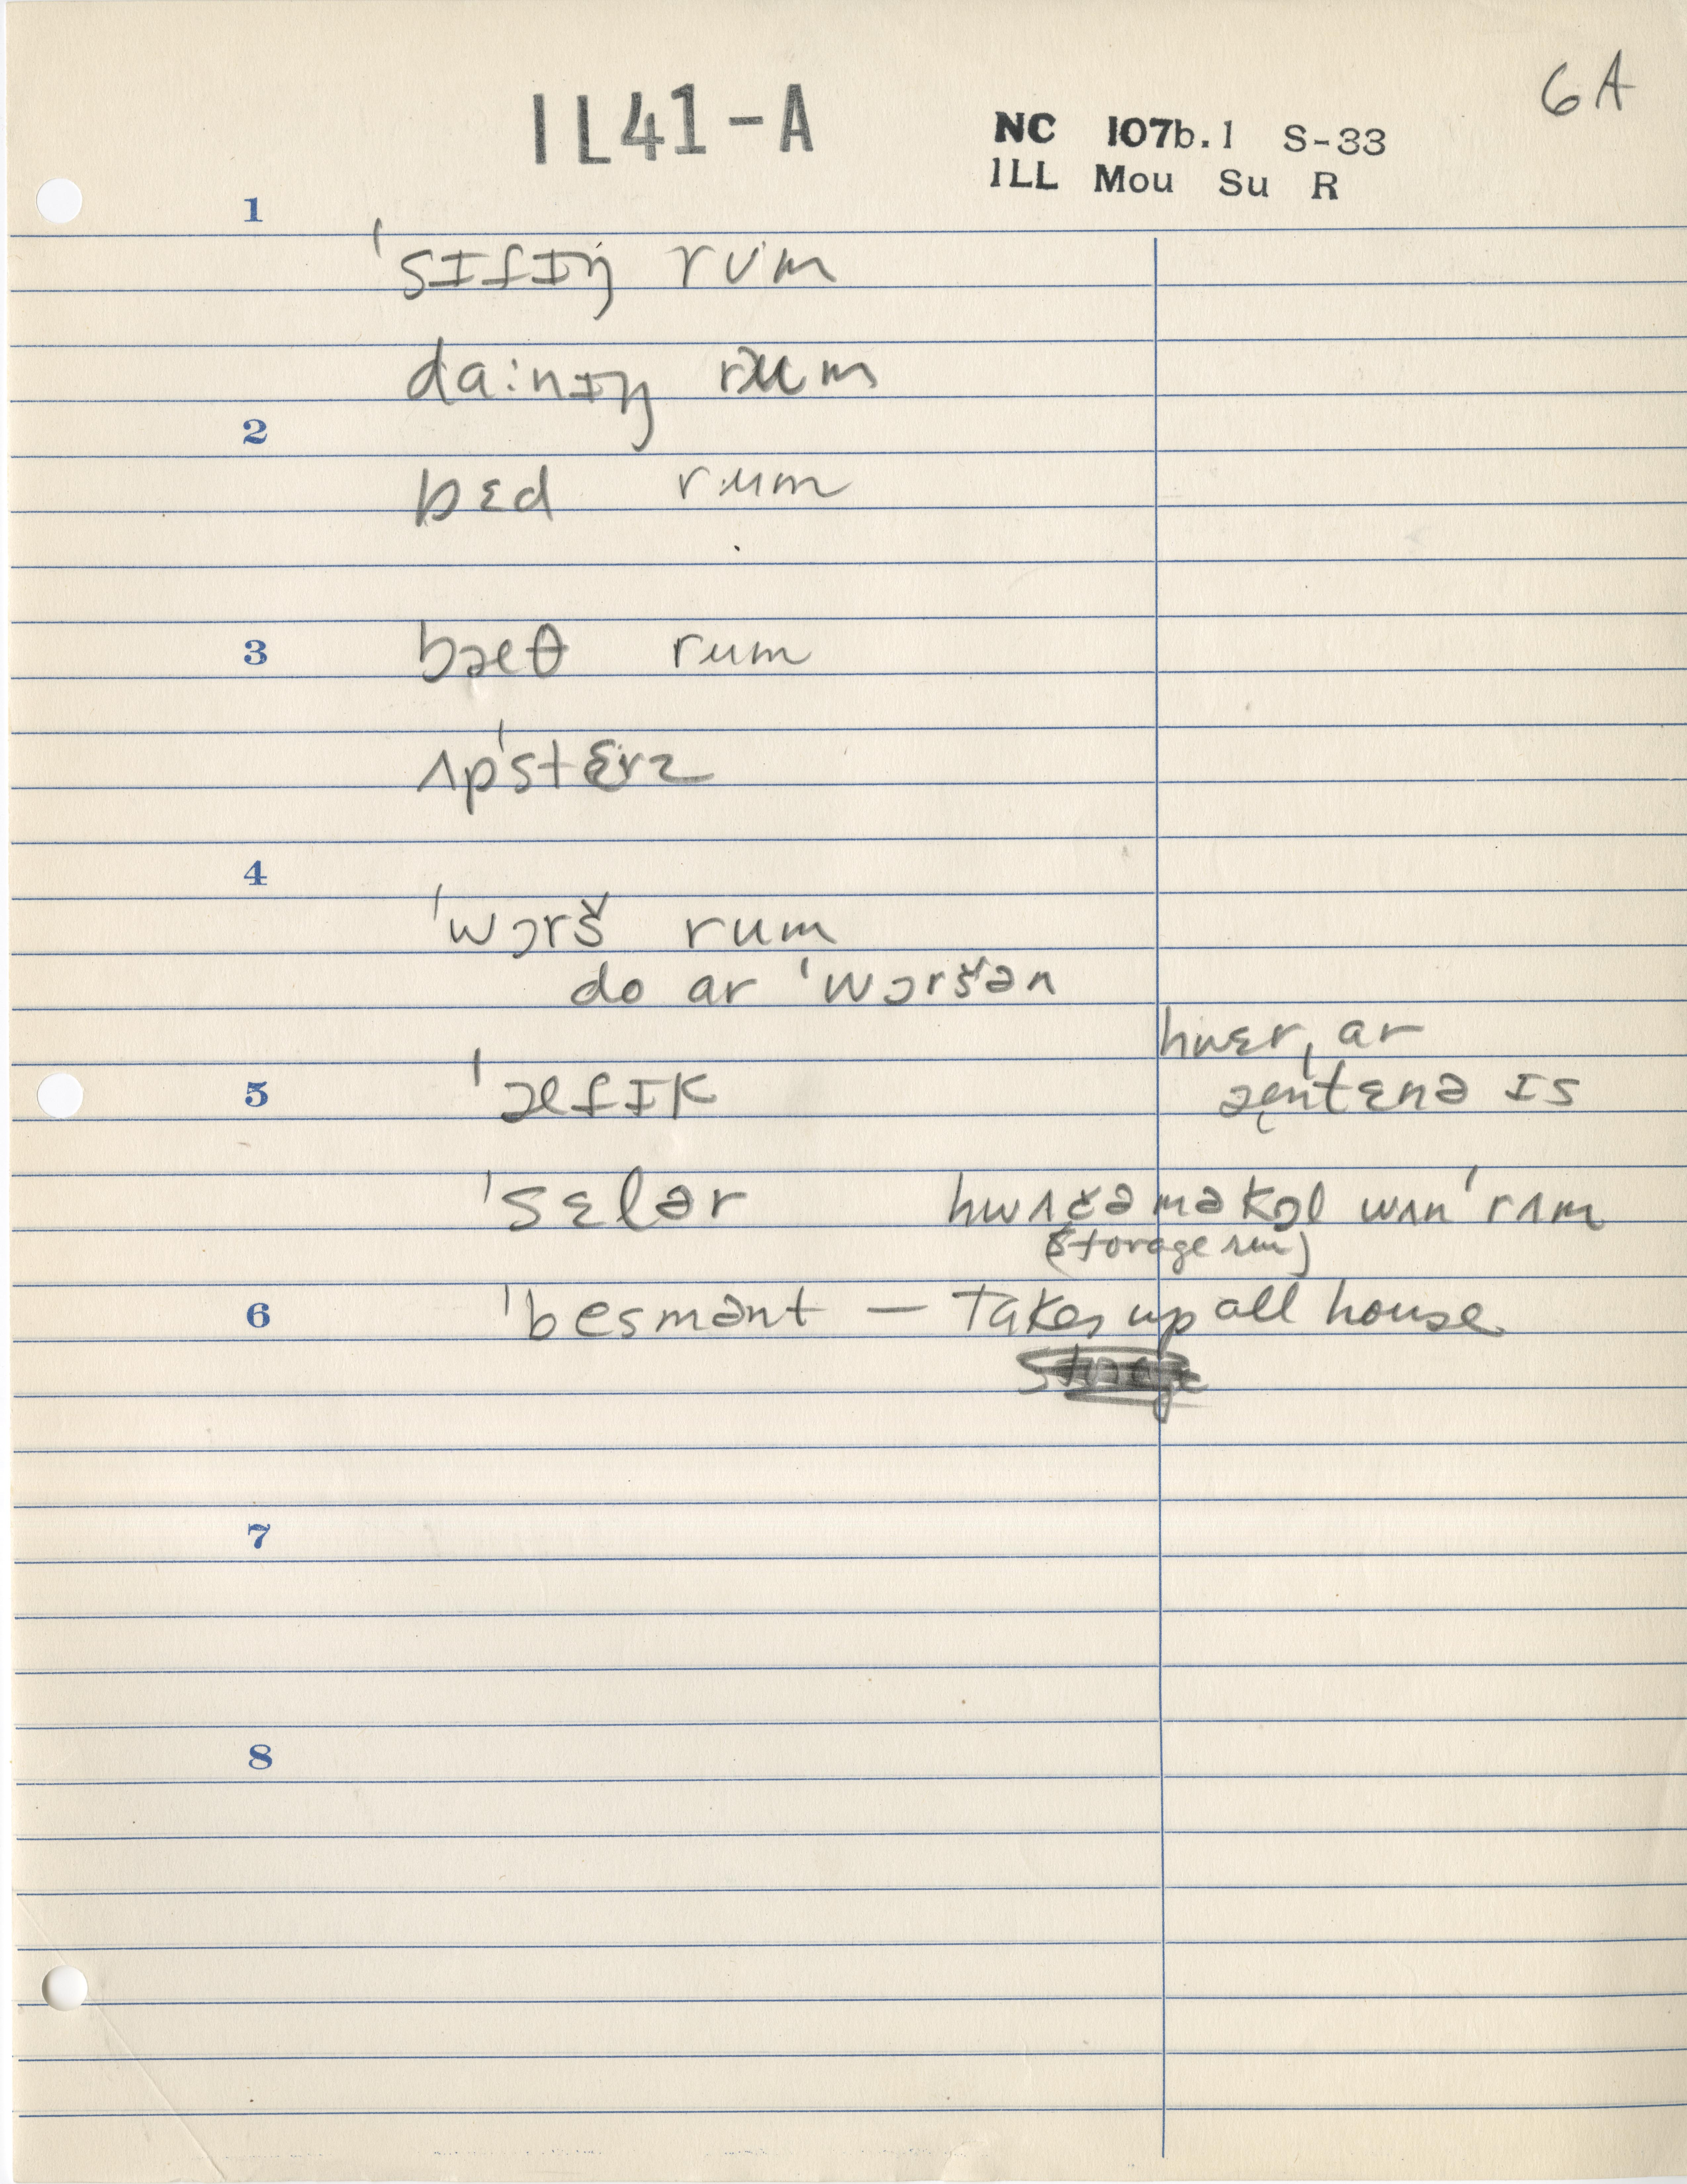 6A
IL41-A
NC 107b.1 S-33
ILL Mou Su R
1
ˈsɪɾɪŋ rum
da:nɪŋ rum
2
bɛd rum
3
bæθ rum
ʌpˈstɛrz
4
ˈwɔrš rum
do ar ˈwɔršən
hwɛr, ar
5 ˈæɾɪk
ænˈtɛnə ɪs
ˈsɛlər hwʌčəməkɔl wʌnˈrʌm
(storage rm)
6 ˈbesmənt — Takes up all house
7
8